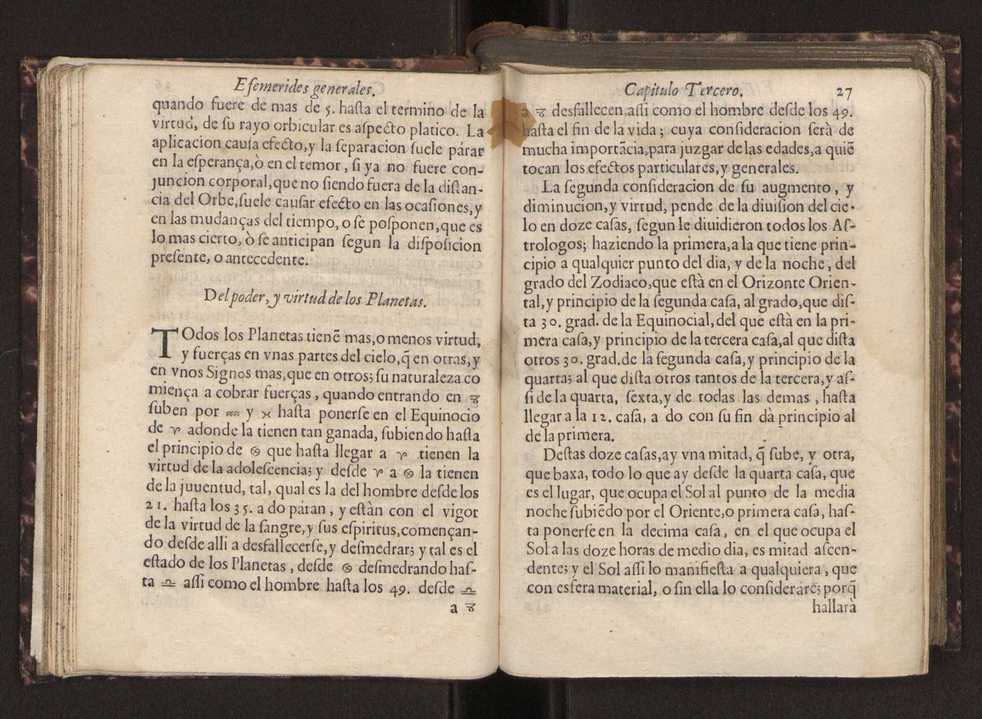 Efemerides generales.
quando fuere de mas de 5. haſta el termino de la
virtud, de ſu rayo orbicular es aſpecto platico. La
aplicacion cauſa efecto, y la ſeparacion ſuele parar
en la eſperança, ò en el temor, ſi ya no fuere con-
juncion corporal, que no ſiendo fuera de la diſtan-
cia del Orbe, ſuele cauſar efecto en las ocaſiones, y
en las mudanças del tiempo, o ſe poſponen, que es
lo mas cierto, ò ſe anticipan ſegun la diſpoſicion
preſente, o antecedente.
Del poder, y virtud de los Planetas.
TOdos los Planetas tienē mas, o menos virtud,
y fuerças en vnas partes del cielo, q̃ en otras, y
en vnos Signos mas, que en otros; ſu naturaleza co
miença a cobrar fuerças, quando entrando en ♑
ſuben por ♒ y ♓ haſta ponerſe en el Equinocio
de ♈ adonde la tienen tan ganada, ſubiendo haſta
el principio de ♋ que haſta llegar a ♈ tienen la
virtud de la adoleſcencia; y deſde ♈ a ♋ la tienen
de la juuentud, tal, qual es la del hombre deſde los
21. haſta los 35. a do paran, y eſtàn con el vigor
de la virtud de la ſangre, y ſus eſpiritus, començan-
do deſde alli a desfallecerſe, y deſmedrar; y tal es el
eſtado de los Planetas, deſde ♋ deſmedrando haſ-
ta ♎ aſſi como el hombre haſta los 49. deſde ♎
a ♑
Capitulo Tercero. 27
a ♑ desfallecen, aſſi como el hombre deſde los 49.
haſta el fin de la vida; cuya conſideracion ſerà de
mucha importācia, para juzgar de las edades, a quiē
tocan los efectos particulares, y generales.
La ſegunda conſideracion de ſu augmento, y
diminucion, y virtud, pende de la diuiſion del cie-
lo en doze caſas, ſegun le diuidieron todos los Aſ-
trologos; haziendo la primera, a la que tiene prin-
cipio a qualquier punto del dia, y de la noche, del
grado del Zodiaco, que eſtà en el Orizonte Orien-
tal, y principio de la ſegunda caſa, al grado, que diſ-
ta 30. grad. de la Equinocial, del que eſtà en la pri-
mera caſa, y principio de la tercera caſa, al que diſta
otros 30. grad. de la ſegunda caſa, y principio de la
quarta; al que diſta otros tantos de la tercera, y aſ-
ſi de la quarta, ſexta, y de todas las demas, haſta
llegar a la 12. caſa, a do con ſu fin dà principio al
de la primera.
Deſtas doze caſas, ay vna mitad, q̃ ſube, y otra,
que baxa, todo lo que ay deſde la quarta caſa, que
es el lugar, que ocupa el Sol al punto de la media
noche ſubiēdo por el Oriente, o primera caſa, haſ-
ta ponerſe en la decima caſa, en el que ocupa el
Sol a las doze horas de medio dia, es mitad aſcen-
dente; y el Sol aſſi lo manifieſta a qualquiera, que
con esfera material, o ſin ella lo conſiderare; porq̃
hallarà